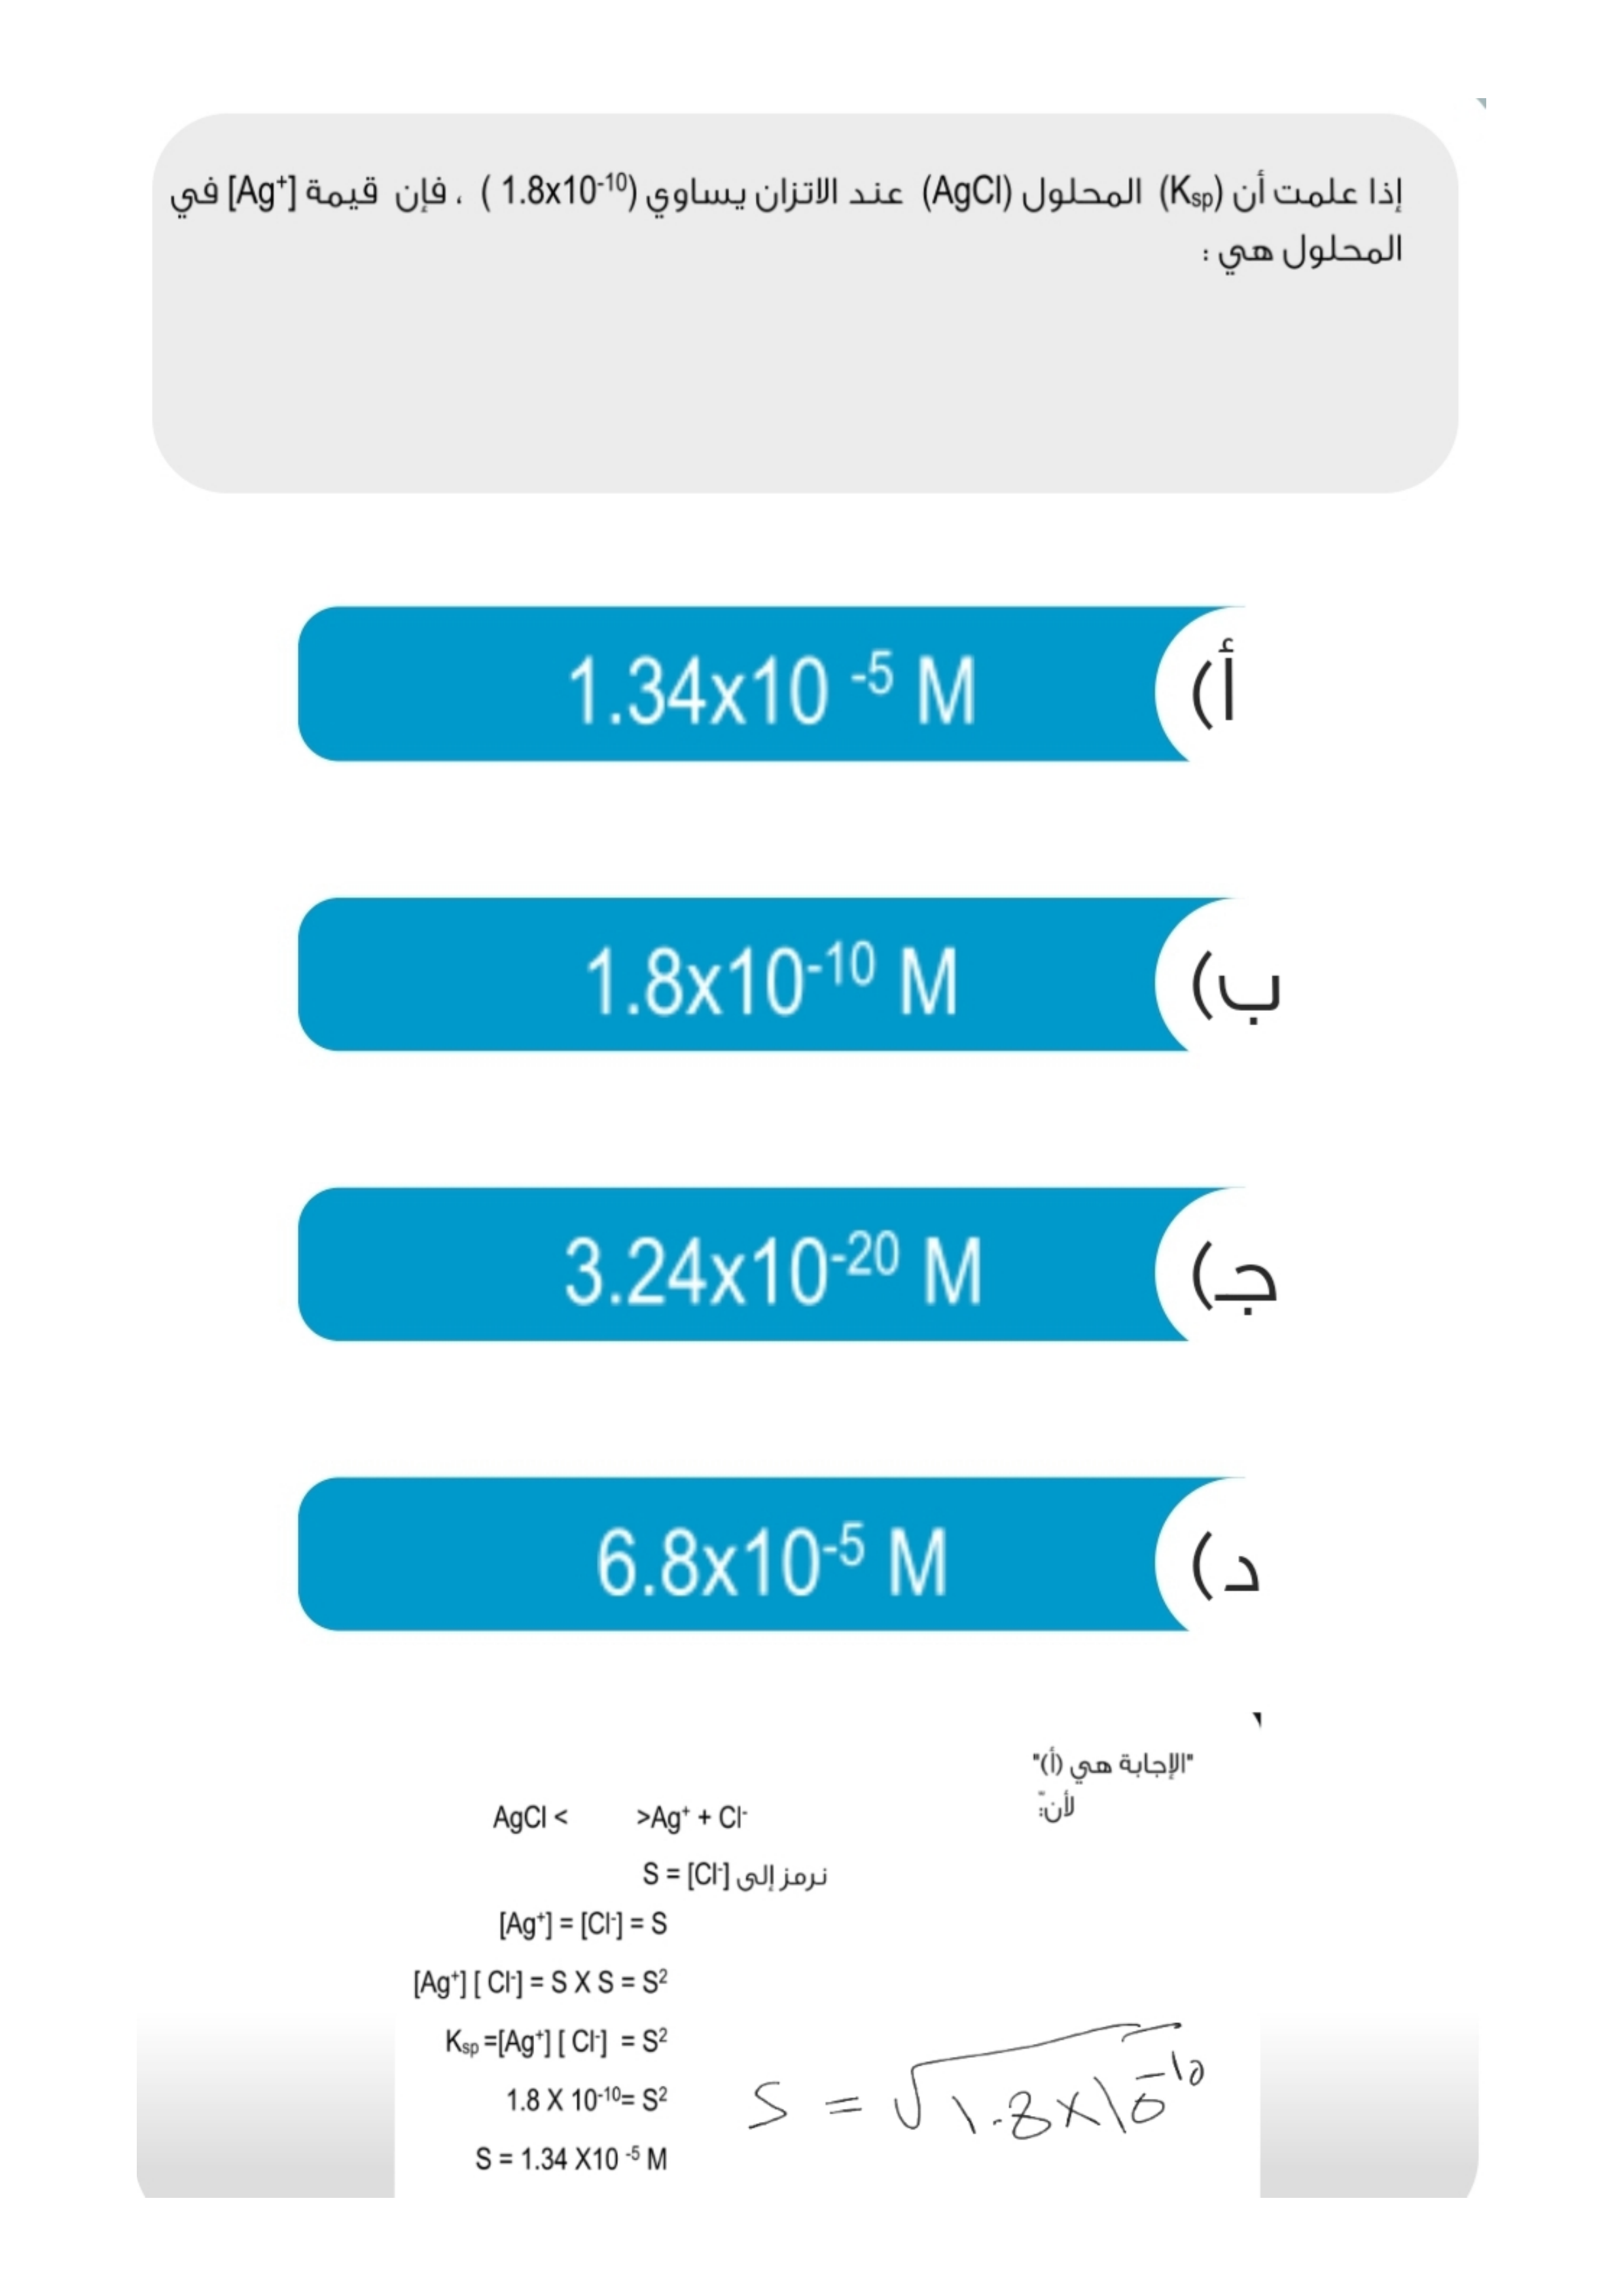 إذا علمت أن (Ksp) المحلول (AgCl) عند الاتزان يساوي (1.8x10⁻¹⁰ ) ، فإن قيمة [Ag⁺] في
المحلول هي :
أ) 1.34x10 ⁻⁵ M
ب) 1.8x10⁻¹⁰ M
ج) 3.24x10⁻²⁰ M
د) 6.8x10⁻⁵ M
"الإجابة هي (أ)"
لأنّ:
AgCl < >Ag⁺ + Cl⁻
نرمز إلى S = [Cl⁻]
[Ag⁺] = [Cl⁻] = S
[Ag⁺] [ Cl⁻] = S X S = S²
Ksp =[Ag⁺] [ Cl⁻] = S²
1.8 X 10⁻¹⁰= S²
S = √1.8x10⁻¹⁰
S = 1.34 X10 ⁻⁵ M